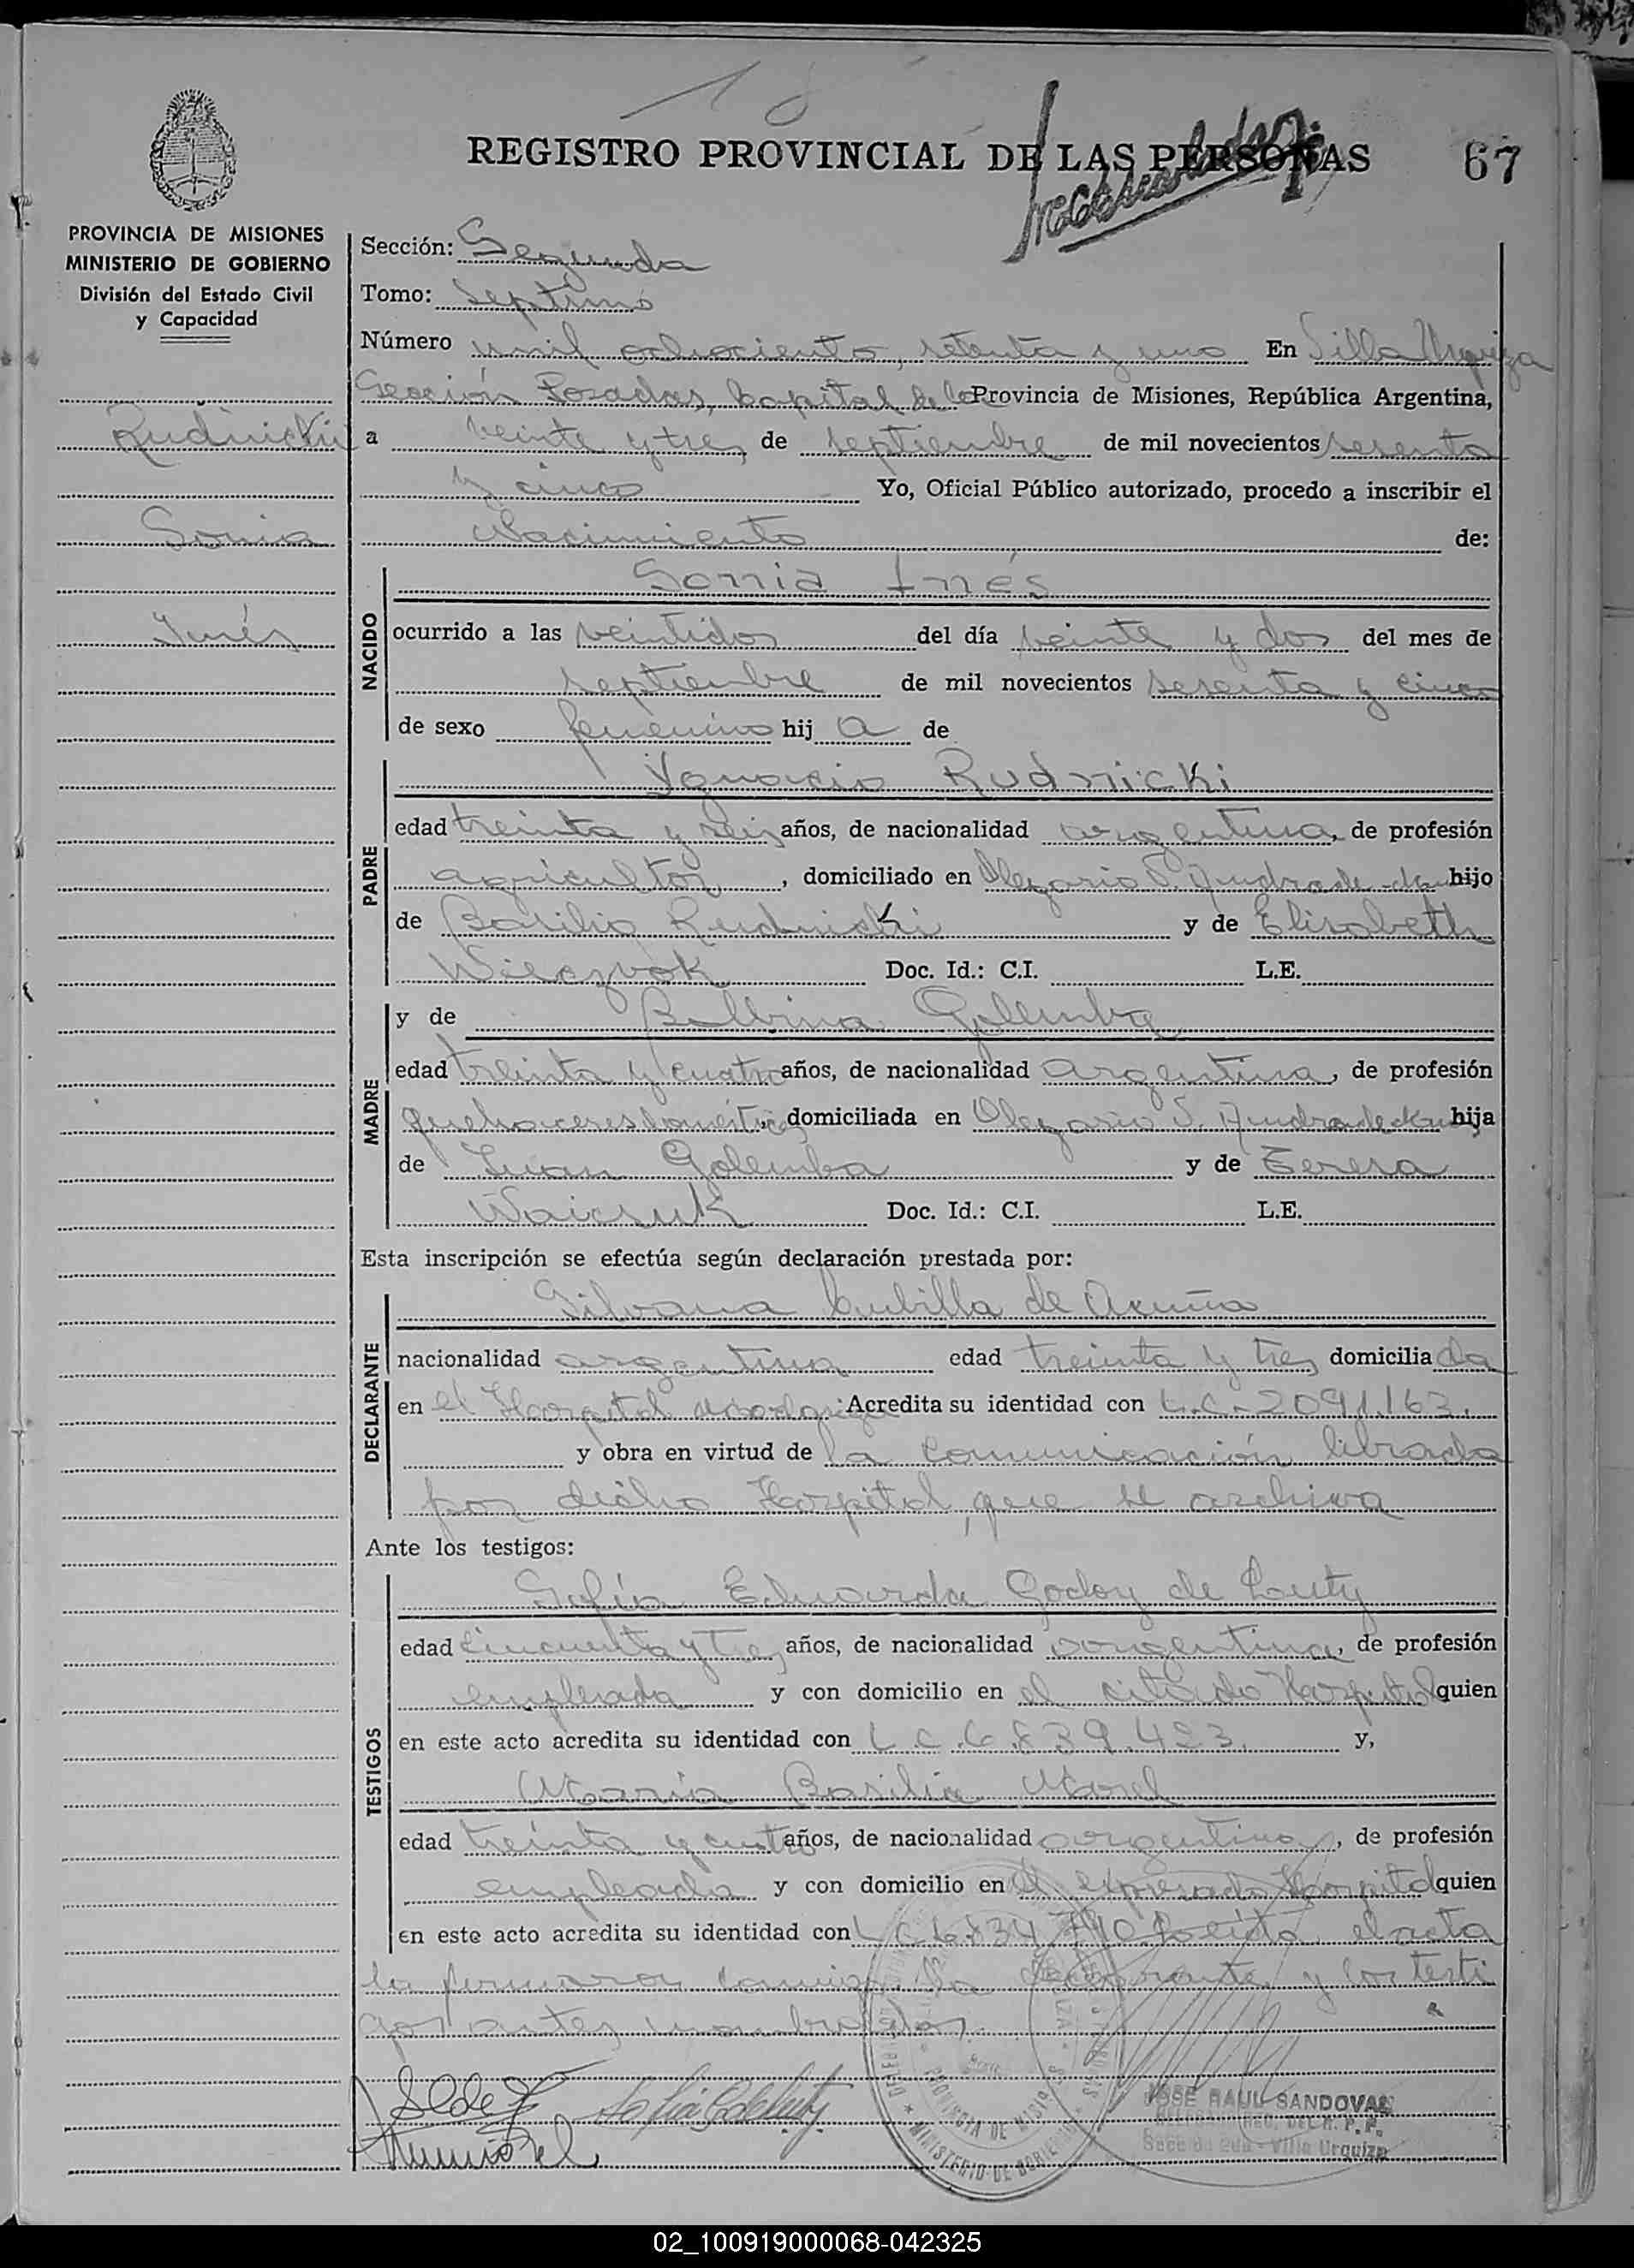 18
REGISTRO PROVINCIAL DE LAS PERSONAS
67
PROVINCIA DE MISIONES
MINISTERIO DE GOBIERNO
División del Estado Civil
y Capacidad
Rudnicki
Sonia
Inés
Sección: Segunda
Tomo: Septimo
Número mil ochocientos setenta y uno En Villa Urquiza
Sección Posadas, Capital de la Provincia de Misiones, República Argentina,
a veinte y tres de septiembre de mil novecientos sesenta
y cinco Yo, Oficial Público autorizado, procedo a inscribir el
Nacimiento de:
NACIDO
Sonia Inés
ocurrido a las veintidos del día veinte y dos del mes de
septiembre de mil novecientos sesenta y cinco
de sexo femenino hij a de
PADRE
Ygnacio Rudnicki
edad treinta y seis años, de nacionalidad argentina, de profesión
agricultor, domiciliado en Olegario V. Andrade hijo
de Basilio Rudnicki y de Elisabeth
Doc. Id.: C.I. L.E.
MADRE
y de Balbina Golemba
edad treinta y cuatro años, de nacionalidad argentina, de profesión
quehaceres domésticos domiciliada en Olegario V. Andrade hija
de Juan Golemba y de Teresa
Waicsuk Doc. Id.: C.I. L.E.
Esta inscripción se efectúa según declaración prestada por:
DECLARANTE
Silvana Cubilla de Acuña
nacionalidad argentina edad treinta y tres domicilia da
en el Hospital Acredita su identidad con L.C. 2091.163.
y obra en virtud de la comunicación librada
por dicho Hospital, que se archiva
Ante los testigos:
TESTIGOS
Sofía Eduarda Godoy de Luty
edad cincuenta y tres años, de nacionalidad argentina, de profesión
empleada y con domicilio en el citado Hospital quien
en este acto acredita su identidad con L.C. 6.839.423. y,
María Basilia Morel
edad treinta y años, de nacionalidad argentina, de profesión
empleada y con domicilio en el expresado Hospital quien
en este acto acredita su identidad con Leída el acta
la firmaron conmigo la declarante y los testi
gos antes nombrados.
MINISTERIO DE GOBIERNO
PROVINCIA DE MISIONES
JOSE RAUL SANDOVAL
Villa Urquiza
02_100919000068-042325